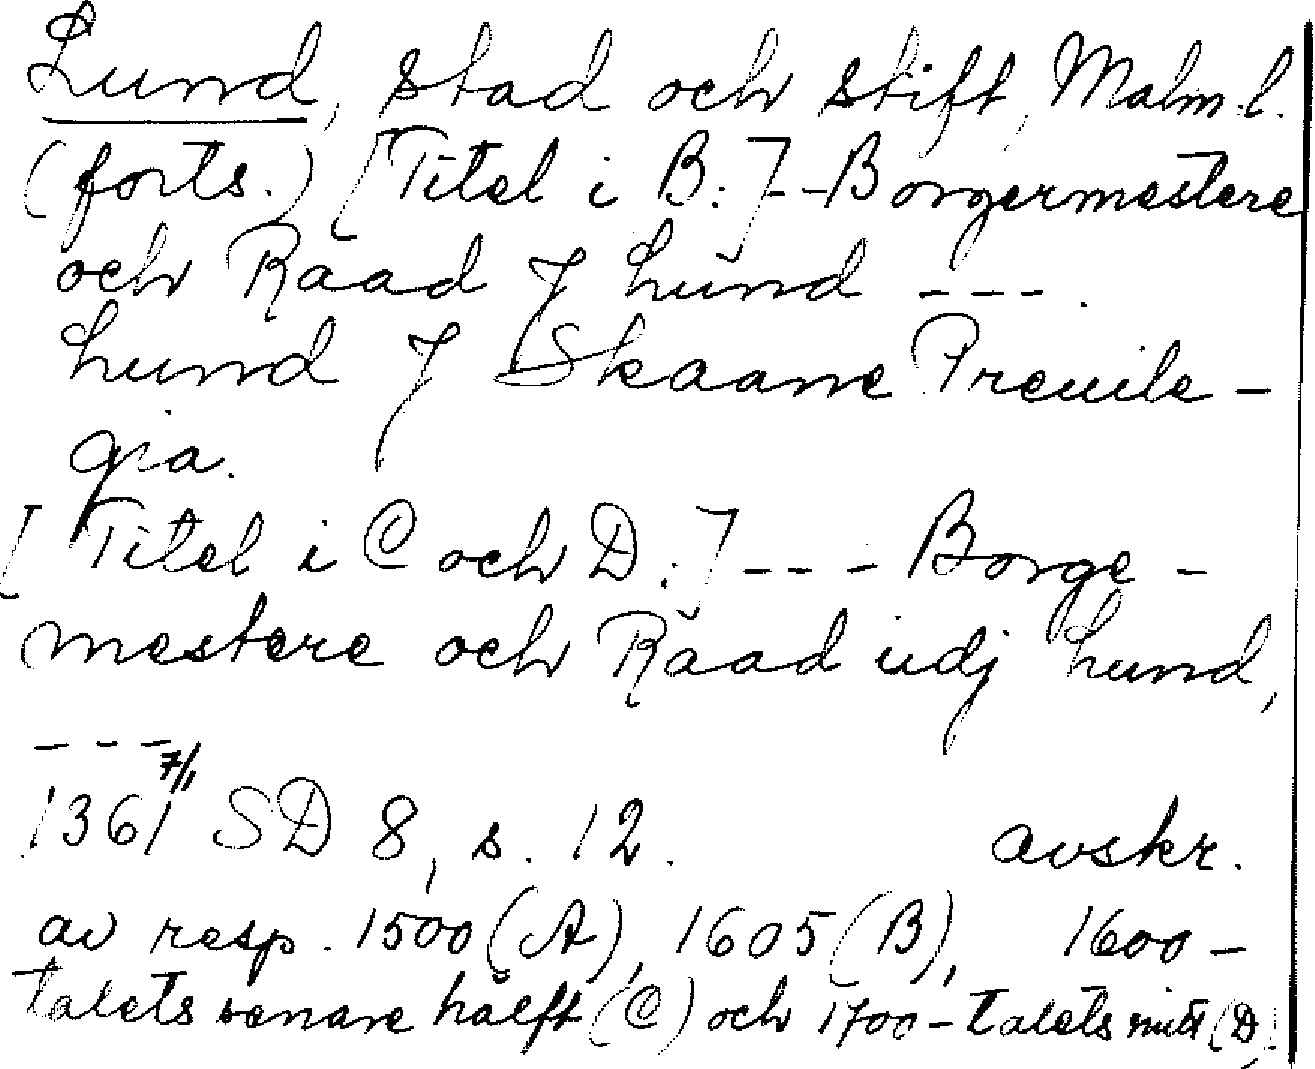 Lund, stad och stift, Malm.l.
(forts.) [Titel i B:]--Borgermestere
och Raad J Lund ---.
Lund J Skaane Preuile-
gia.
[Titel i C och D:]--- Borge-
mestere och Raad udj Lund,
---
1361 7/1 SD 8, s. 12. avskr.
av resp. 1500 (A), 1605 (B), 1600-
talets senare hälft (C) och 1700-talets mitt (D).